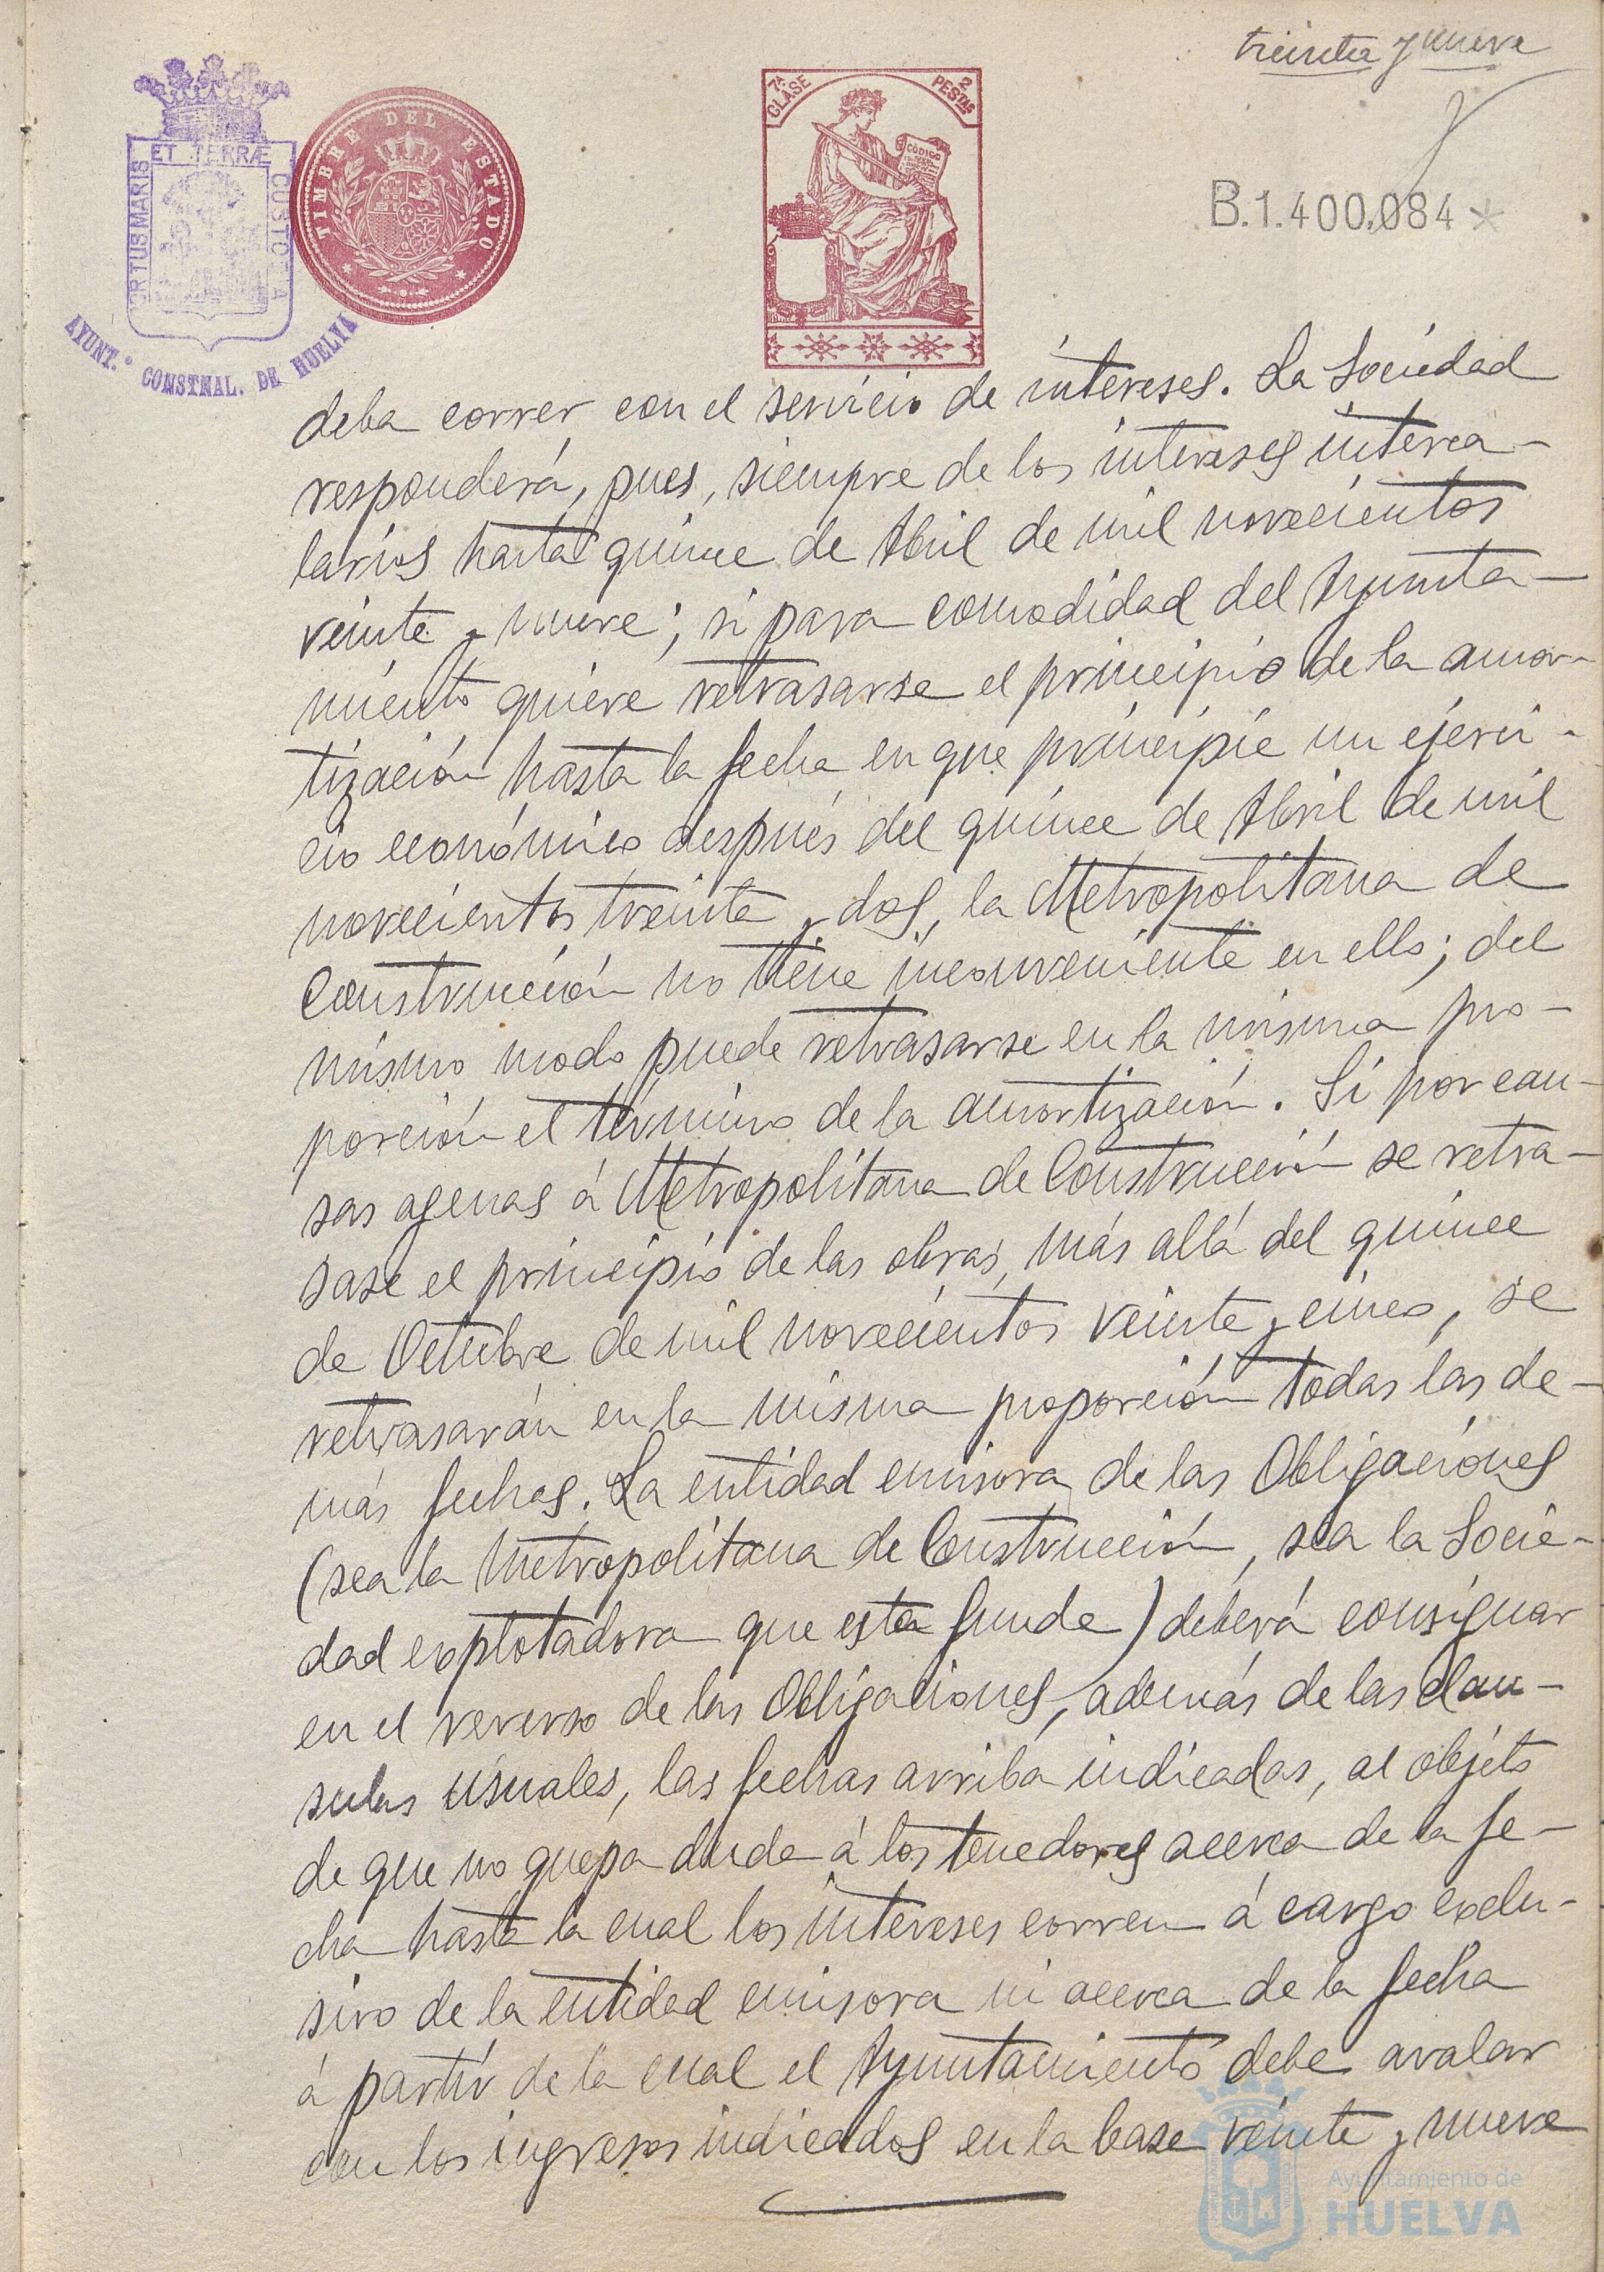 treinta y nueve
7ª CLASE
2 PESTAS
CÓDIGO
TIMBRE DEL ESTADO
ET TERRÆ
PORTUS MARIS
CUSTODIA
AYUNT.º CONSTNAL. DE HUELVA
B.1.400,084*
deba correr con el servicio de intereses. La Sociedad
responderá, pues, siempre de los intereses interca-
larios hasta quince de Abril de mil novecientos
veinte y nueve; si para comodidad del Ayunta-
miento quiere retrasarse el principio de la amor-
tización hasta la fecha en que principie un ejerci-
cio económico después del quince de Abril de mil
novecientos treinta y dos, la Metropolitana de
Construcción no tiene inconveniente en ello; del
mismo modo puede retrasarse en la misma pro-
porción el término de la amortización. Si por cau-
sas agenas á Metropolitana de Construcción se retra-
sase el principio de las obras, más allá del quince
de Octubre de mil novecientos veinte y cinco, se
retrasarán en la misma proporción todas las de-
más fechas. La entidad emisora de las Obligaciones
(sea la Metropolitana de Construcción, sea la Socie-
dad explotadora que esta funde) deberá consignar
en el reverso de las Obligaciones, además de las clau-
sulas usuales, las fechas arriba indicadas, al objeto
de que no quepa duda á los tenedores acerca de la fe-
cha hasta la cual los intereses corren á cargo exclu-
sivo de la entidad emisora ni acerca de la fecha
á partir de la cual el Ayuntamiento debe avalar
con los ingresos indicados en la base veinte y nueve
Ayuntamiento de
HUELVA